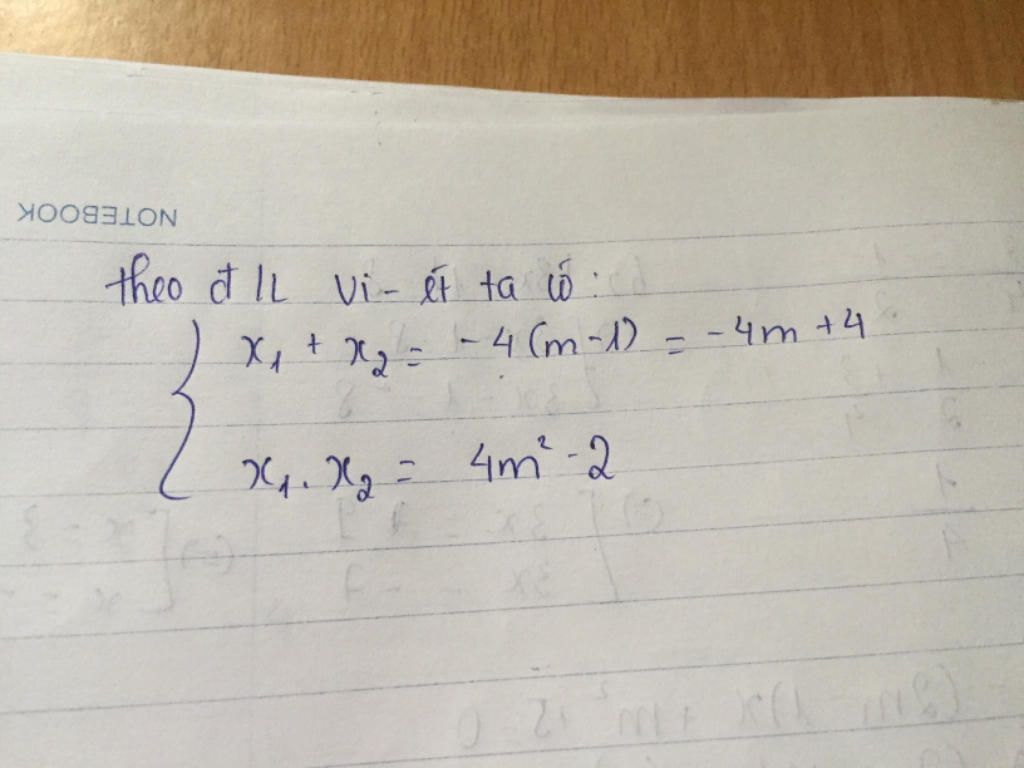 NOTEBOOK
theo đ lL vi-ét ta có:
x₁ + x₂ = -4(m-1) = -4m+4
x₁.x₂ = 4m²-2